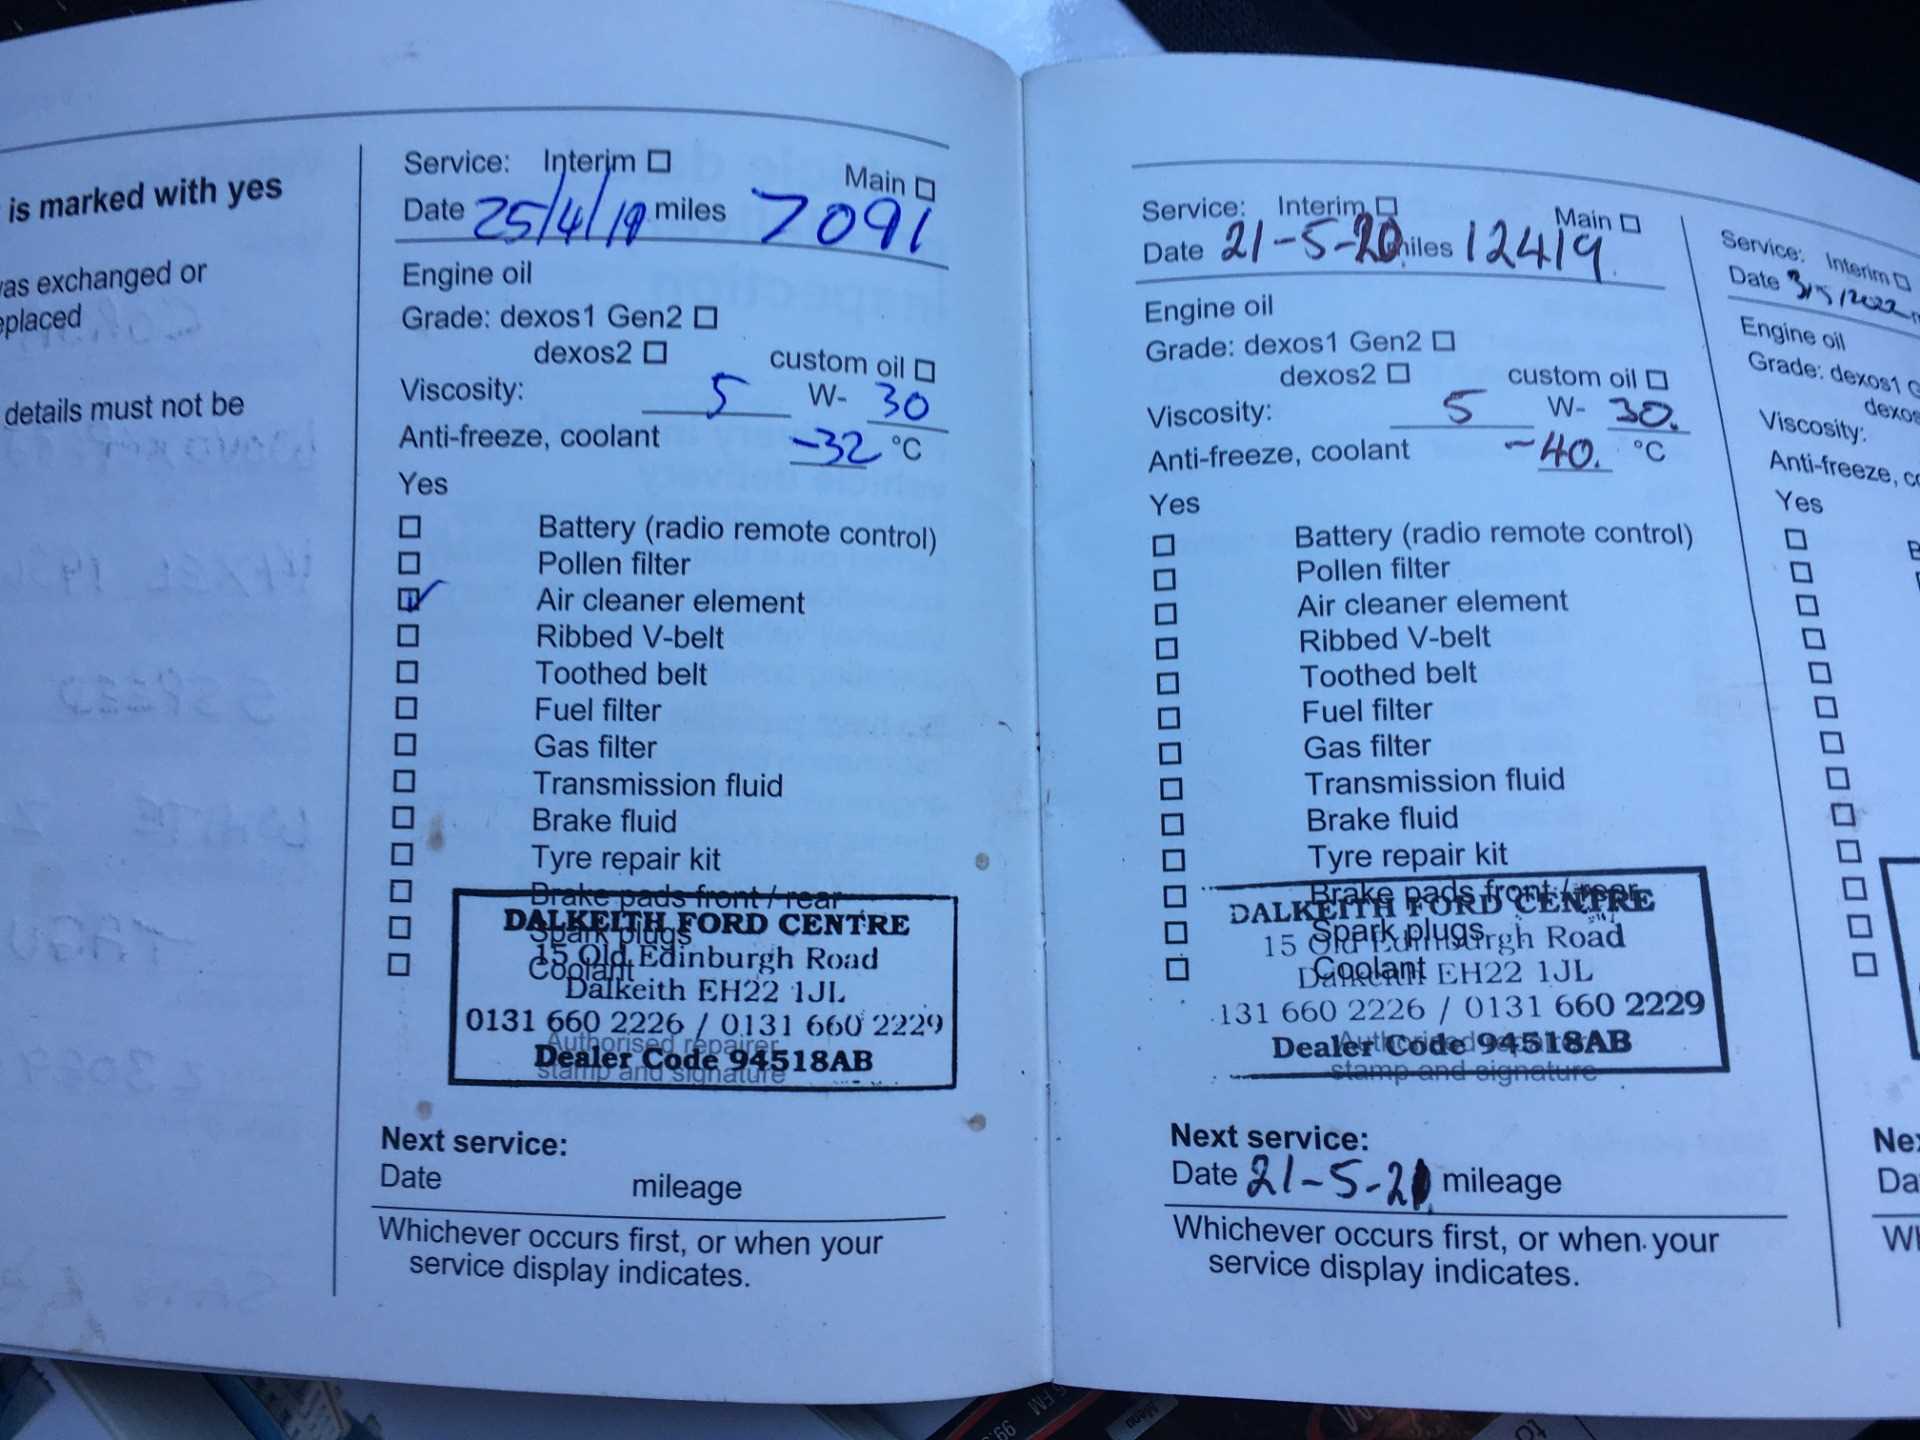 is marked with yes
was exchanged or
eplaced
details must not be
Service: Interim ☐ Main ☐
Date 25/4/19 miles 7091
Engine oil
Grade: dexos1 Gen2 ☐
dexos2 ☐ custom oil ☐
Viscosity: 5 W- 30
Anti-freeze, coolant -32 °C
Yes
☐ Battery (radio remote control)
☐ Pollen filter
☑ Air cleaner element
☐ Ribbed V-belt
☐ Toothed belt
☐ Fuel filter
☐ Gas filter
☐ Transmission fluid
☐ Brake fluid
☐ Tyre repair kit
☐ Brake pads front / rear
☐ Spark plugs
☐ Coolant
DALKEITH FORD CENTRE
15 Old Edinburgh Road
Dalkeith EH22 1JL
0131 660 2226 / 0131 660 2229
Authorised repairer
Dealer Code 94518AB
stamp and signature
Next service:
Date mileage
Whichever occurs first, or when your
service display indicates.
Service: Interim ☐ Main ☐
Date 21-5-20 miles 12419
Engine oil
Grade: dexos1 Gen2 ☐
dexos2 ☐ custom oil ☐
Viscosity: 5 W- 30.
Anti-freeze, coolant -40. °C
Yes
☐ Battery (radio remote control)
☐ Pollen filter
☐ Air cleaner element
☐ Ribbed V-belt
☐ Toothed belt
☐ Fuel filter
☐ Gas filter
☐ Transmission fluid
☐ Brake fluid
☐ Tyre repair kit
☐ Brake pads front / rear
☐ Spark plugs
☐ Coolant
DALKEITH FORD CENTRE
15 Old Edinburgh Road
Dalkeith EH22 1JL
131 660 2226 / 0131 660 2229
Authorised repairer
Dealer Code 94518AB
stamp and signature
Next service:
Date 21-5-21 mileage
Whichever occurs first, or when your
service display indicates.
Service: Interim ☐
Date 31/5/2022 m
Engine oil
Grade: dexos1 G
dexos
Viscosity:
Anti-freeze, co
Yes
B
Nex
Da
Wh